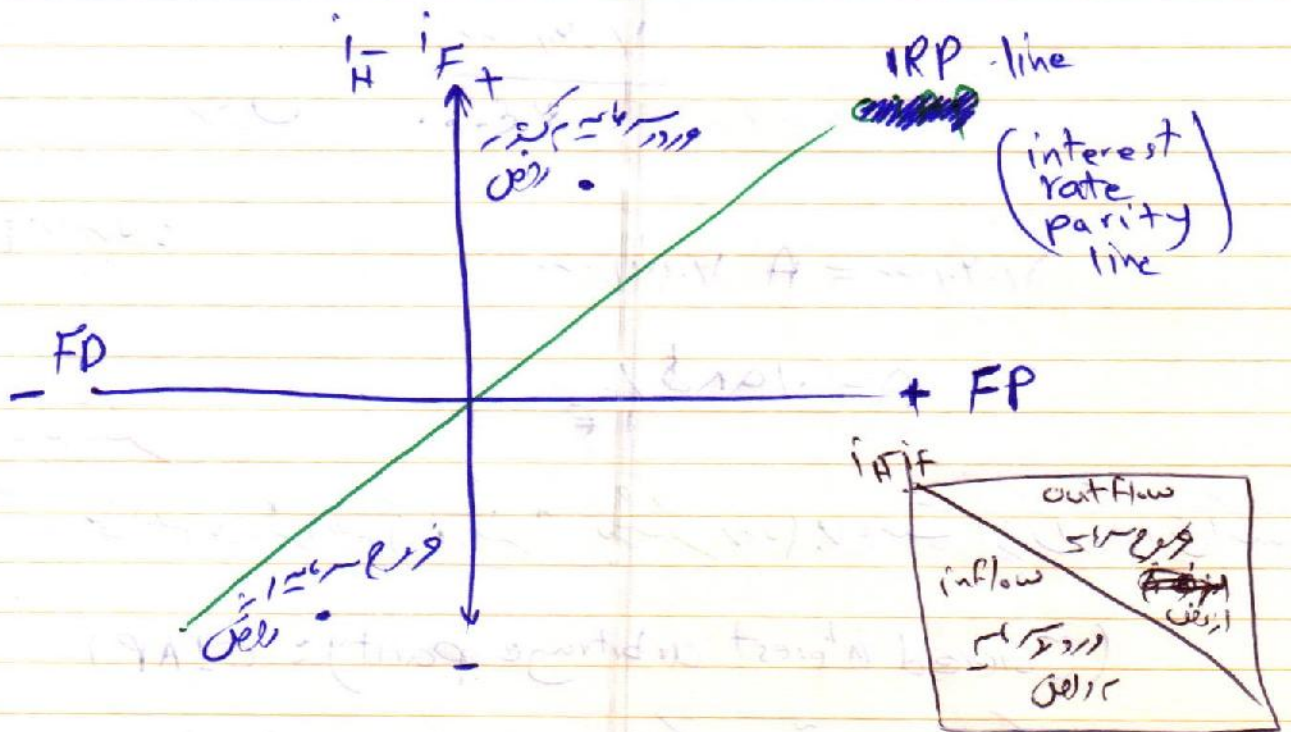 i_H - i_F
+
IRP line
(interest
rate
parity
line)
ورود سرمایه به کشور
داخل
FD
-
+ FP
خروج سرمایه از
داخل
-
i_H i_F
outflow
خروج سرمایه
از داخل
inflow
ورود سرمایه
به داخل